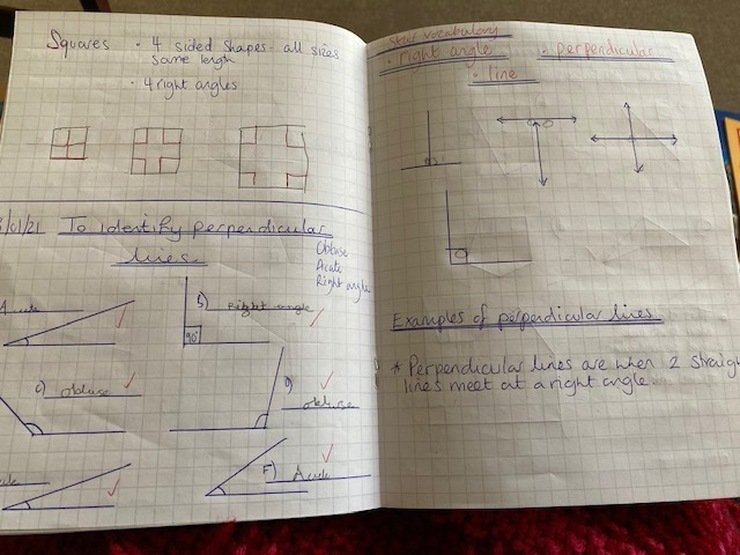 Squares · 4 sided shapes - all sizes
same length
· 4 right angles
/01/21 To identify perpendicular
lines
Obtuse
Acute
Right angle
Acute
b) right angle
90°
c) obtuse
obtuse
F) Acute
Star vocabulary
· right angle · perpendicular
· line
Examples of perpendicular lines
* Perpendicular lines are when 2 straigh
lines meet at a right angle.